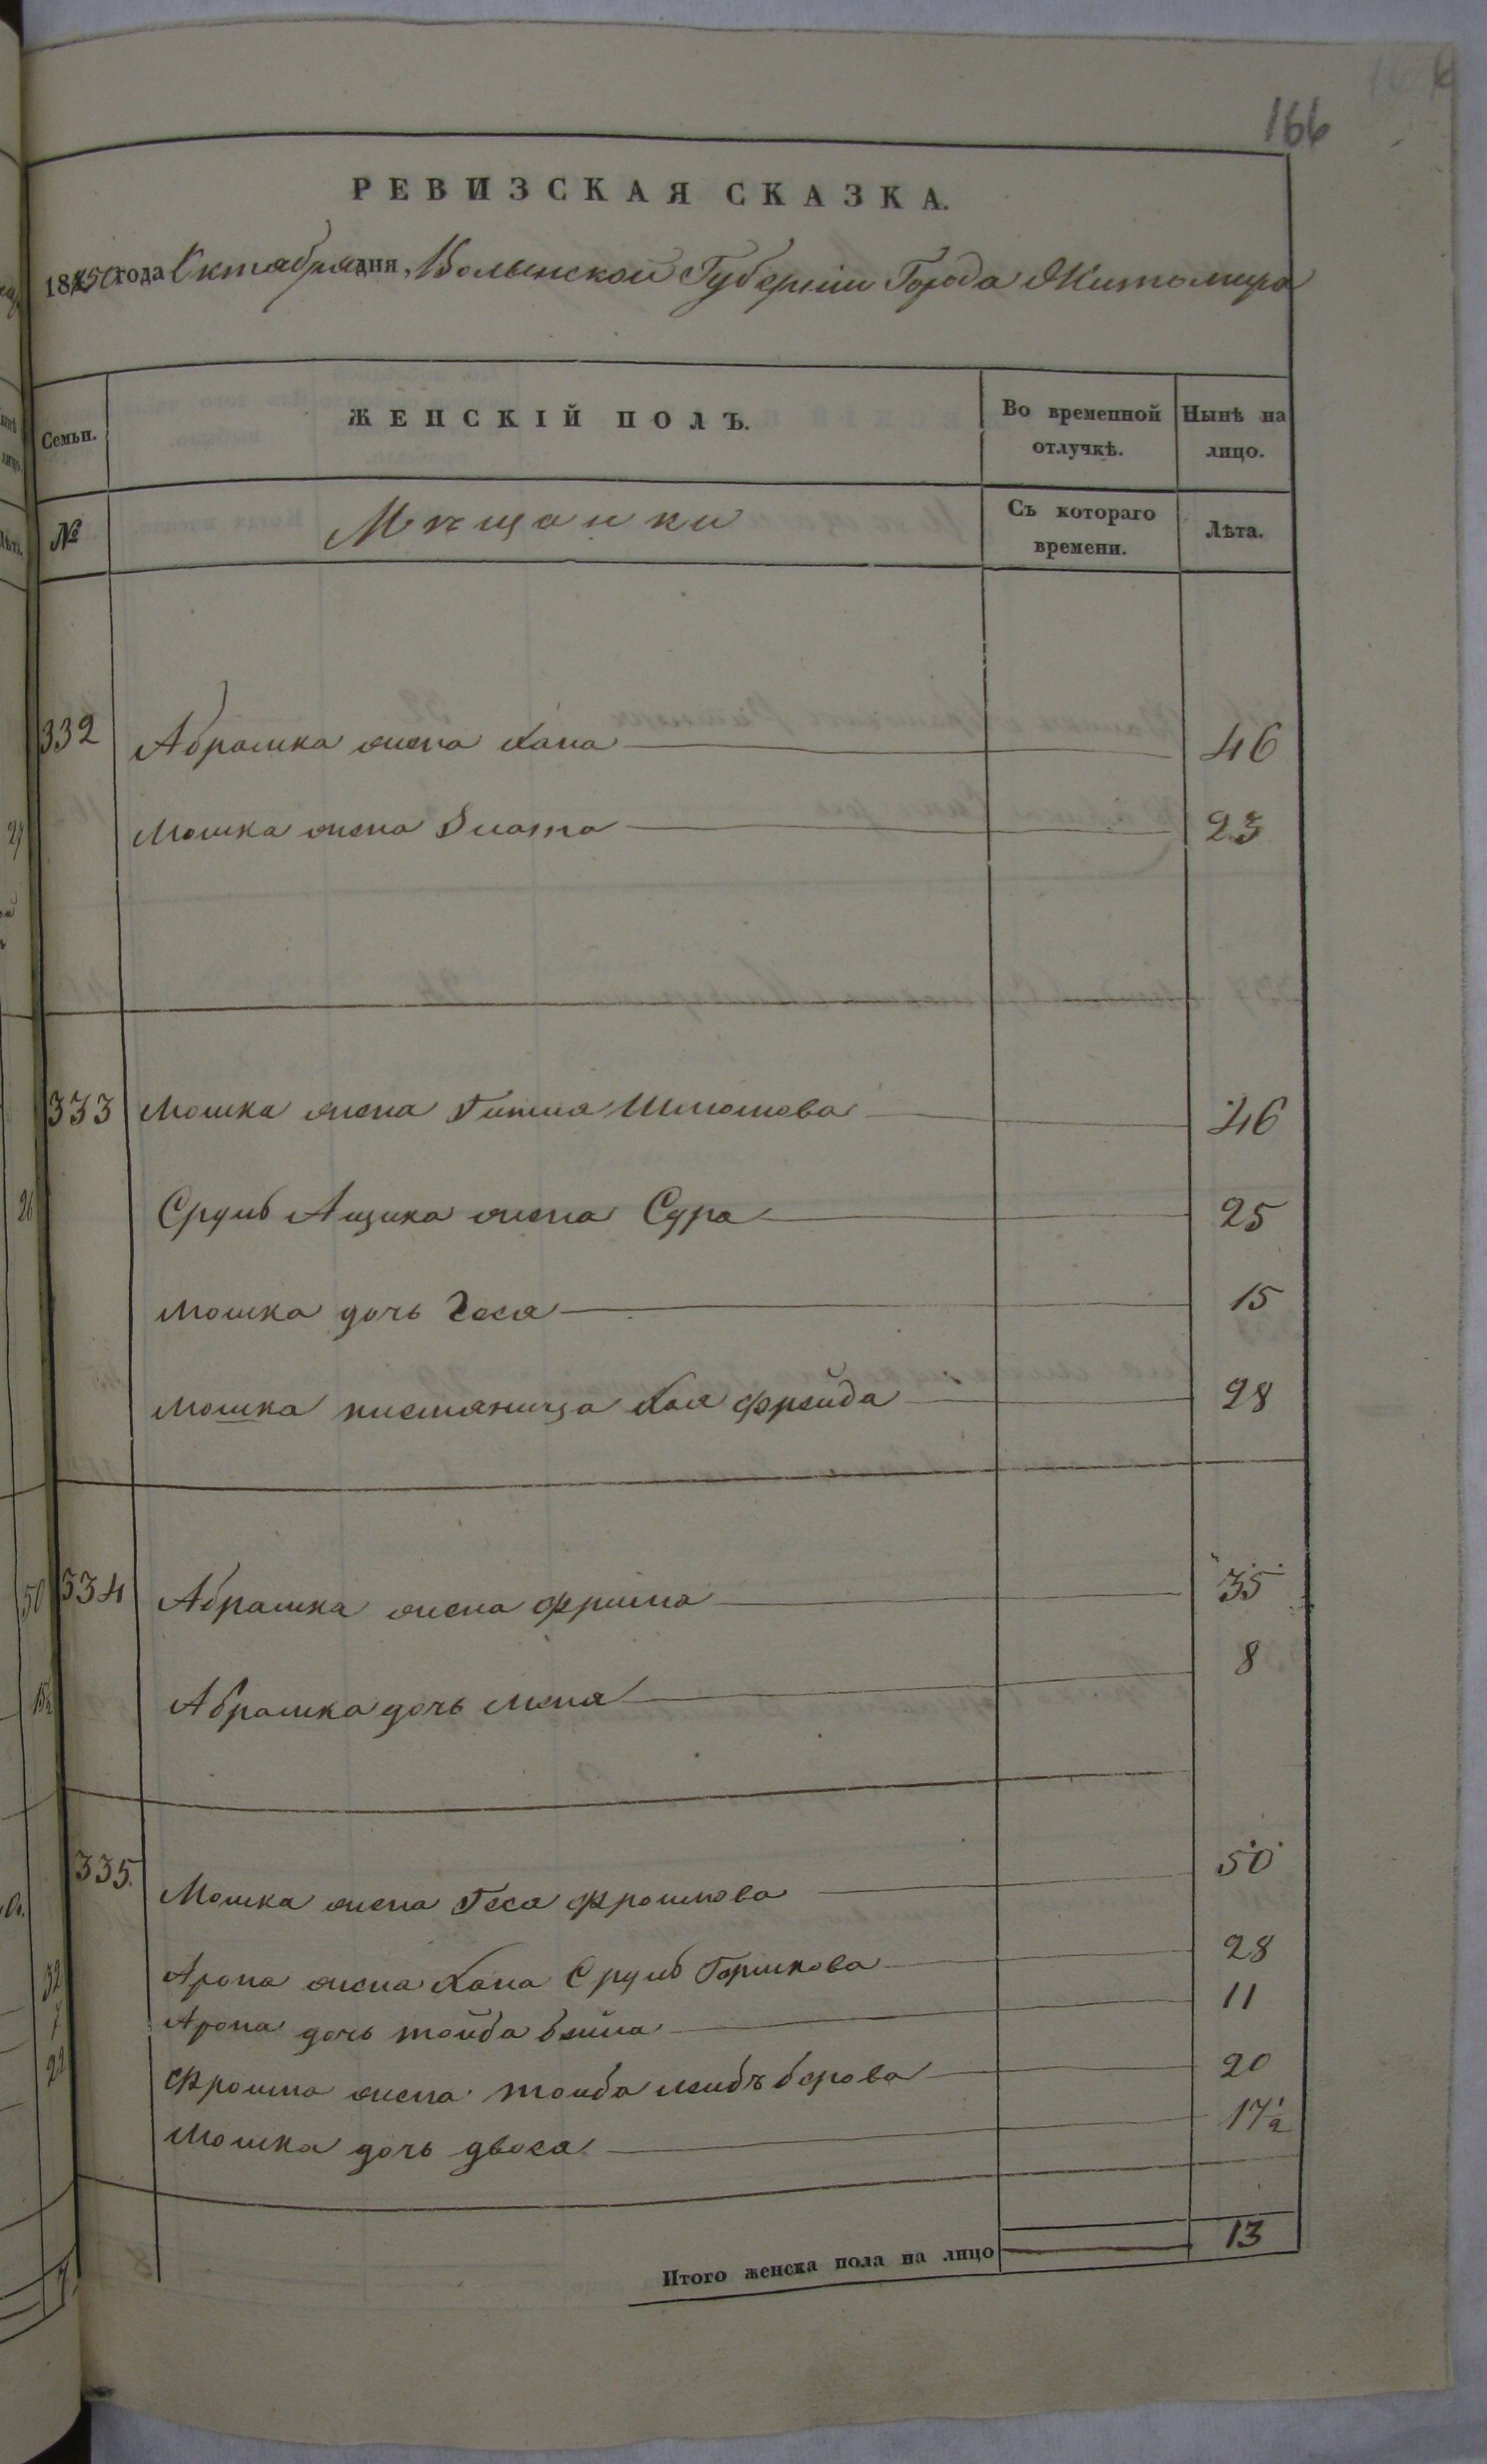 166
РЕВИЗСКАЯ СКАЗКА.
1850 года Октября дня, Волынской Губерніи Города Житомира
Семьи. ЖЕНСКІЙ ПОЛЪ. Во временной отлучкѣ. Нынѣ на лицо.
№ Мѣщанки Съ котораго времени. Лѣта.
332 Абрашка жена Хана 46
Мошка жена Злата 23
333 Мошка жена Гитля Шмошова 46
Сруль Ащика жена Сура 25
Мошка дочь Геся 15
Мошка племяница Хая Фрейда 28
334 Абрашка жена Фрима 35
Абрашка дочь Меня 8
335. Мошка жена Геся Фроимова 50
Арона жена Хана Сруль Горшкова 28
Арона дочь Тойба Бейла 11
Фроима жена Тойба Лейбъ Берова 20
Мошка дочь Двося 17½
Итого женска пола на лицо 13